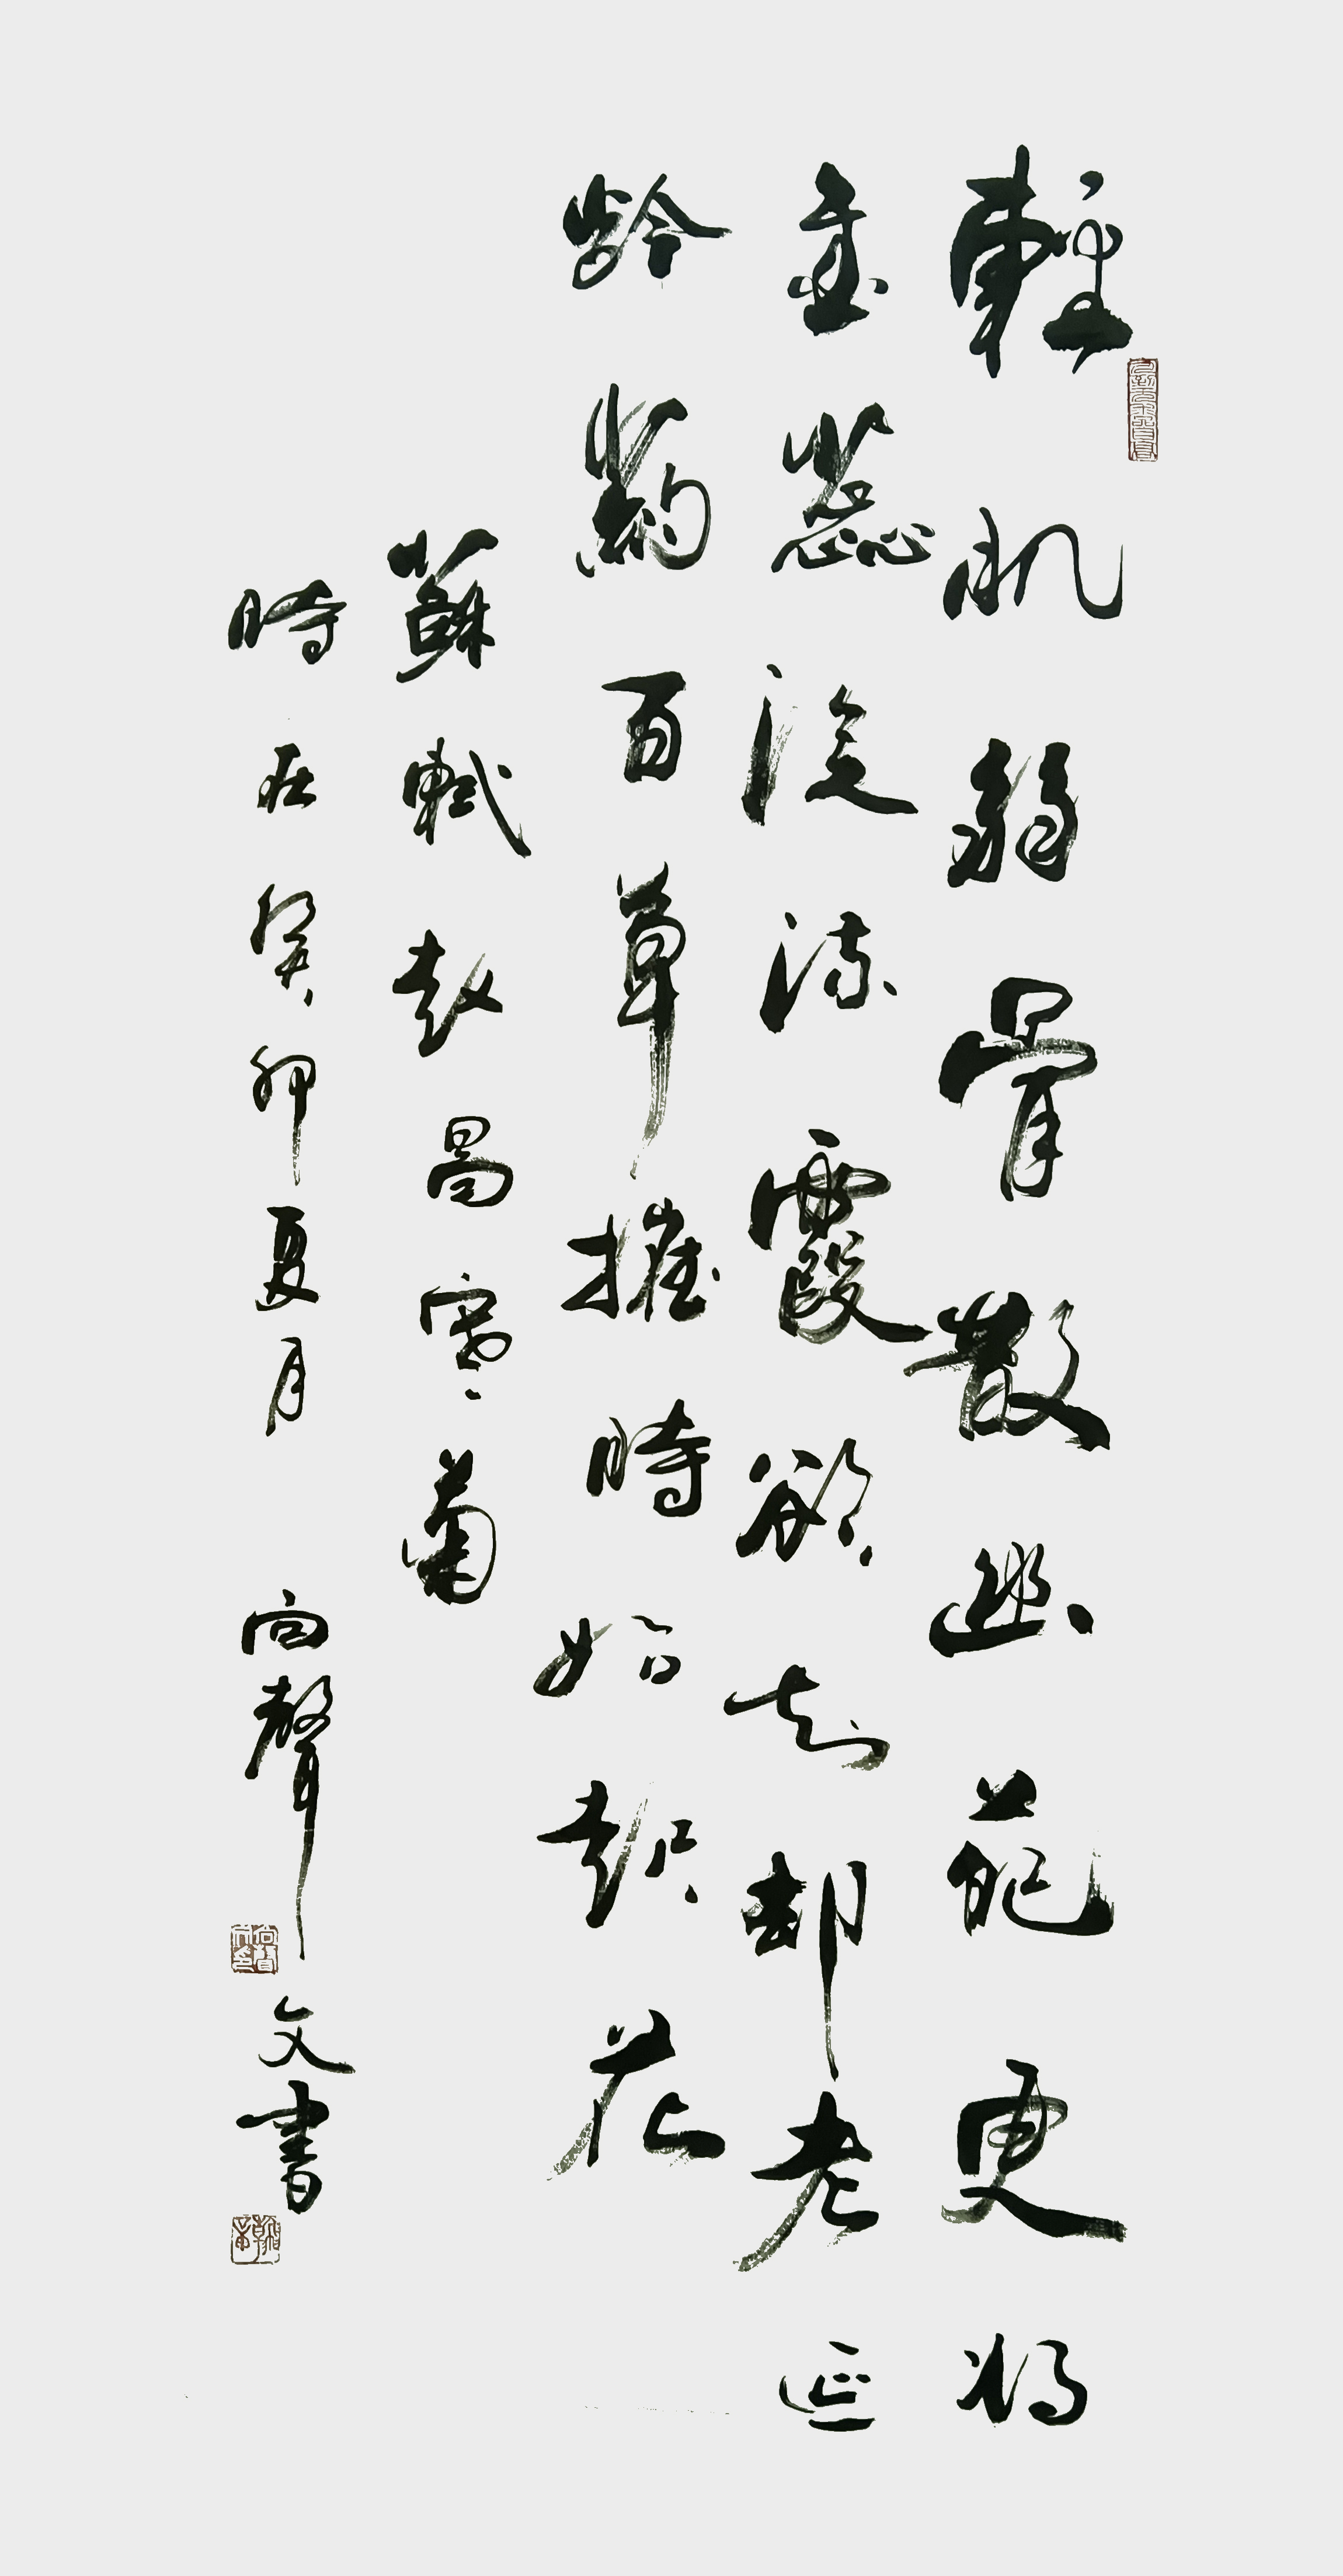 輕肌弱骨散幽葩更將
金蕊泛流霞欲知却老延
齡藥百草摧時始起花
蘇軾趙昌寒菊
時在癸卯夏月 向聲文書